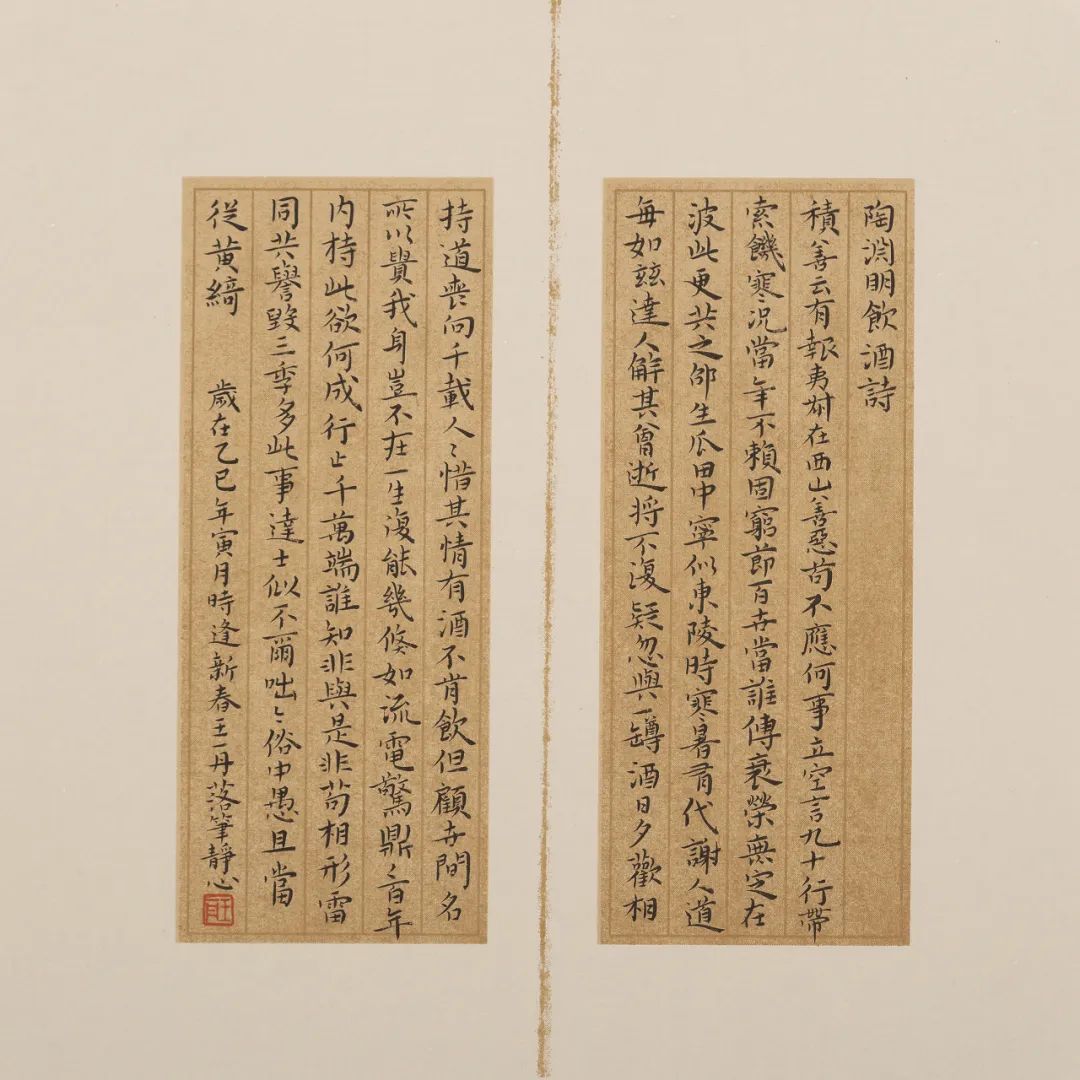 陶淵明飲酒詩
積善云有報夷叔在西山善惡苟不應何事立空言九十行帶
索饑寒況當年不賴固窮節百世當誰傳衰榮無定在
彼此更共之邵生瓜田中寧似東陵時寒暑有代謝人道
每如茲達人解其會逝將不復疑忽與一罇酒日夕歡相
持道喪向千載人〻惜其情有酒不肯飲但顧世間名
所以貴我身豈不在一生復能幾倏如流電驚鼎〻百年
內持此欲何成行止千萬端誰知非與是非苟相形雷
同共譽毀三季多此事達士似不爾咄〻俗中愚且當
從黃綺 歲在乙巳年寅月時逢新春王一丹落筆靜心